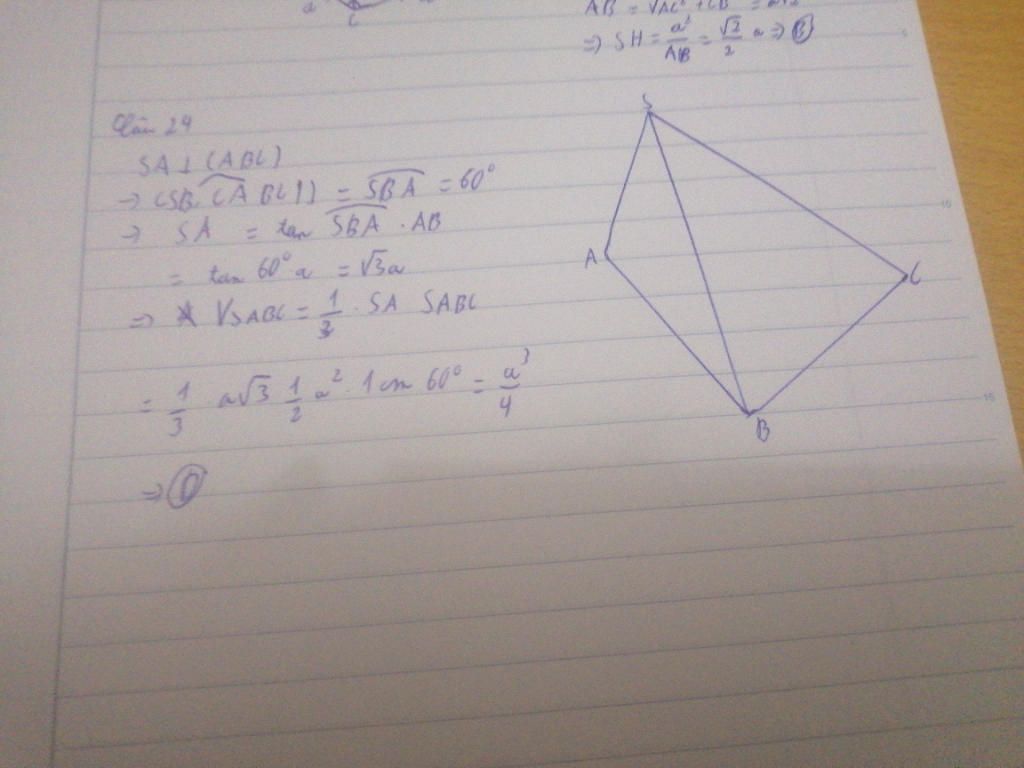 a
C
=> SH = a²/AB = √2/2 a => B
Câu 24
SA ⊥ (ABC)
→ (SB, (ABC)) = SBA = 60°
→ SA = tan SBA . AB
= tan 60° a = √3a
=> VSABC = 1/3 . SA SABC
= 1/3 a√3 1/2 a² . 1 sin 60° = a³/4
=> D
S
A
C
B
10
15